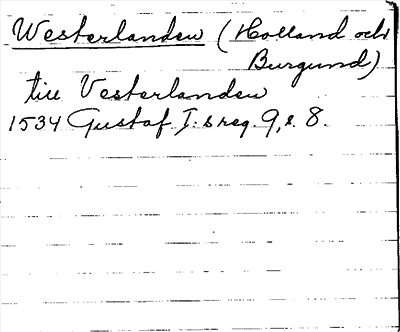 Westerlanden (Holland och
Burgund)
till Vesterlanden
1534 Gustaf I:s reg. 9, s. 8.